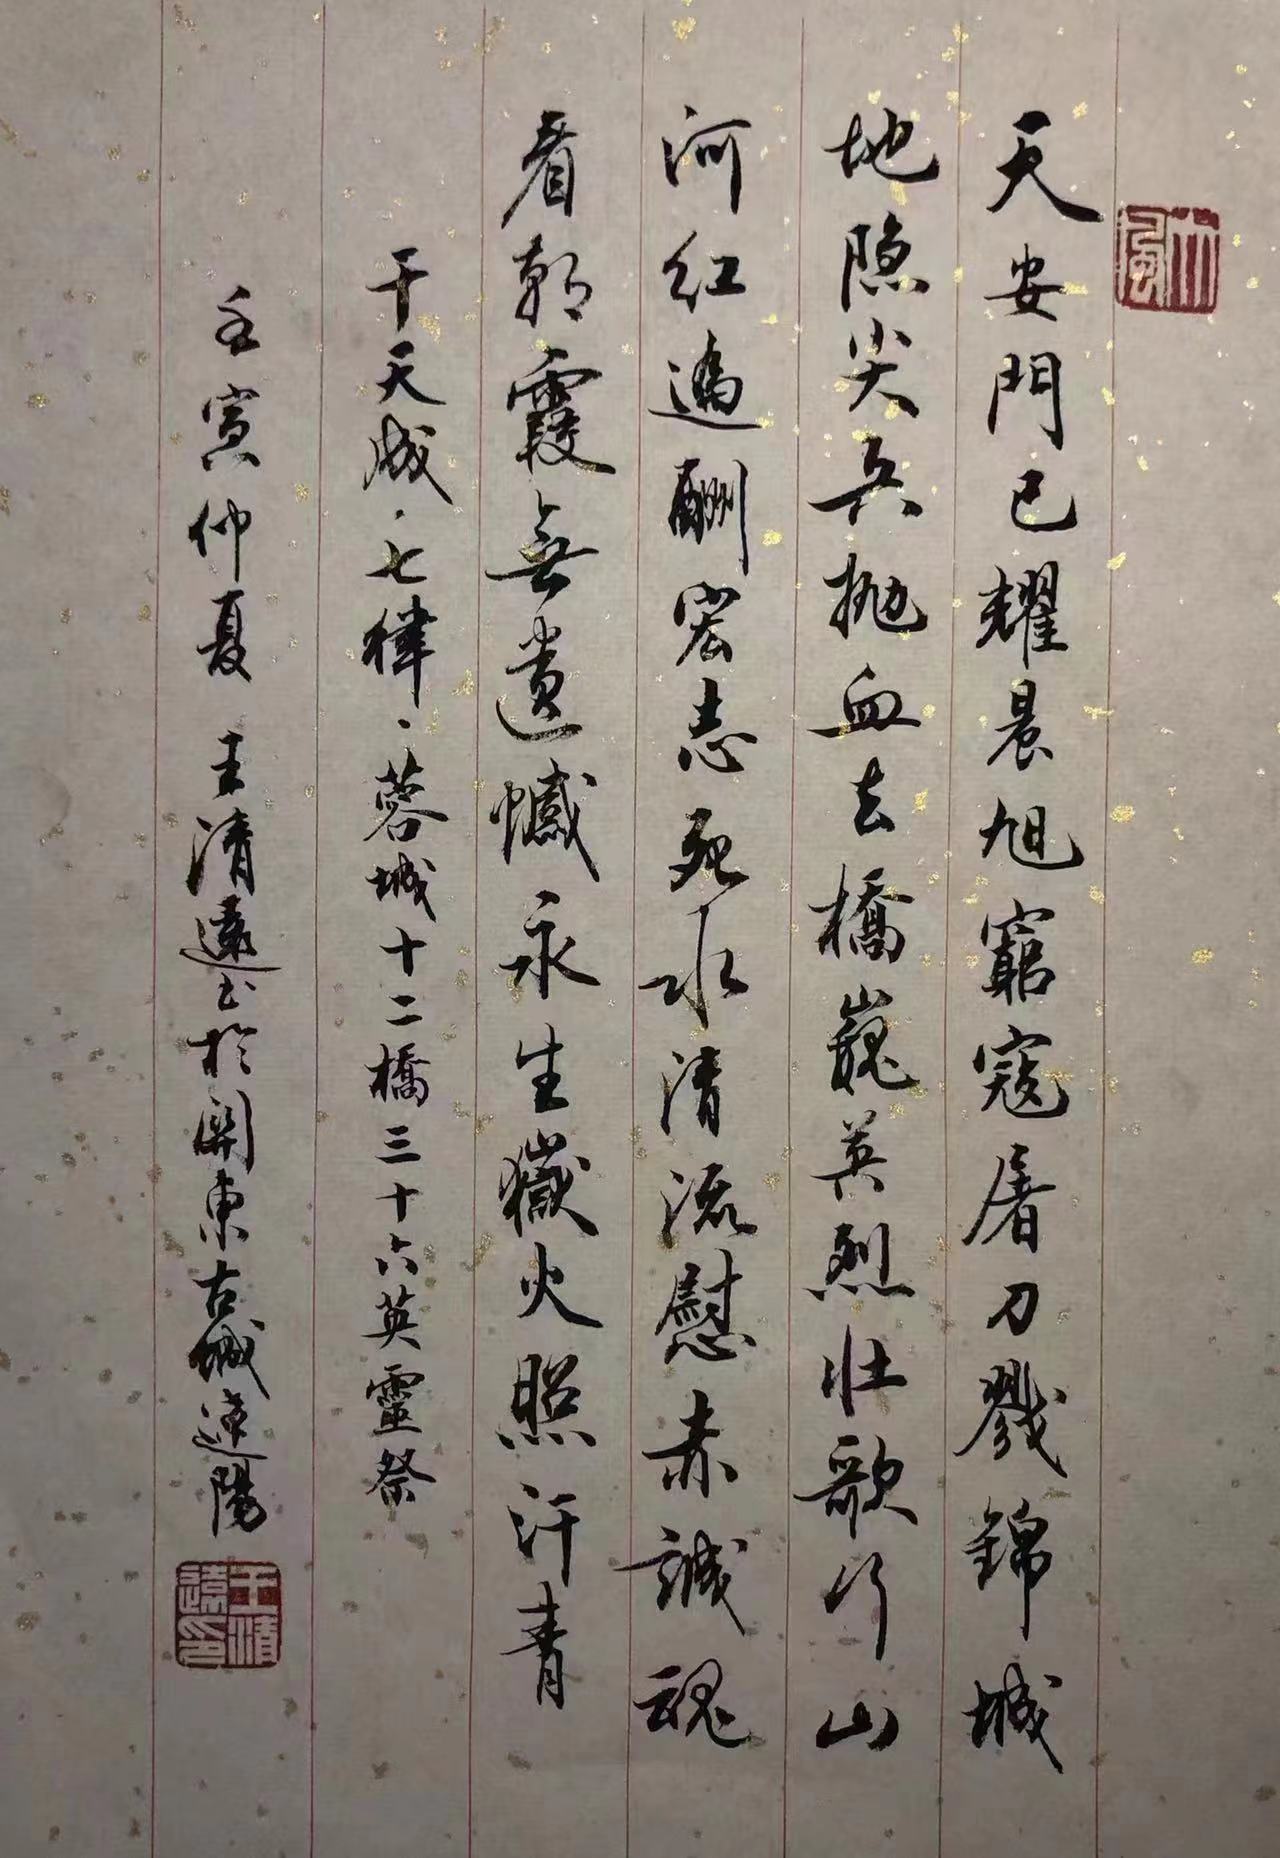 天安門已耀晨旭窮寇屠刀戮錦城
地隐尖兵抛血去橋巍英烈壮歌行山
河红遍酬宏志死水清流慰赤誠魂
看朝霞無遺憾永生嶽火照汗青
干天成·七律、蓉城十二橋三十六英靈祭
壬寅仲夏 王清遠书於関東古城遼陽
王清遠印